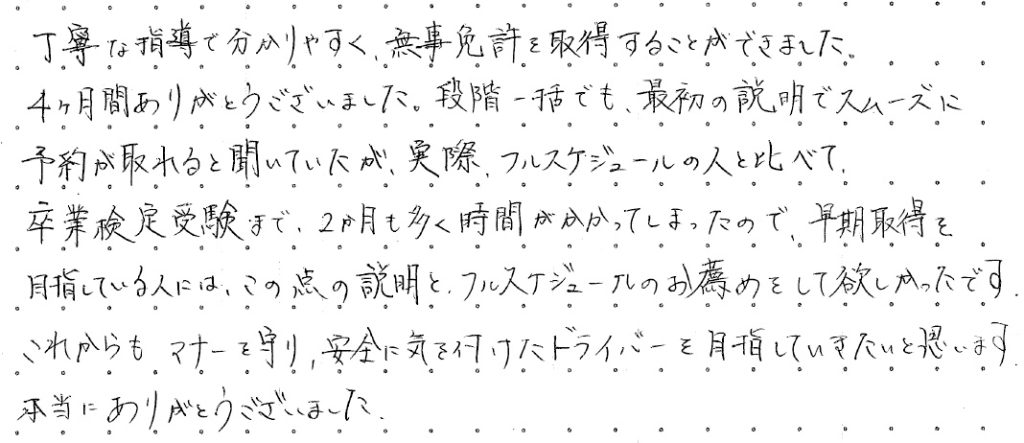 丁寧な指導で分かりやすく、無事免許を取得することができました。
4ヶ月間ありがとうございました。段階一括でも、最初の説明でスムーズに
予約が取れると聞いていたが、実際、フルスケジュールの人と比べて、
卒業検定受験まで、2か月も多く時間がかかってしまったので、早期取得を
目指している人には、この点の説明と、フルスケジュールのお薦めをして欲しかったです。
これからも マナーを守り、安全に気を付けたドライバーを目指していきたいと思います。
本当にありがとうございました。